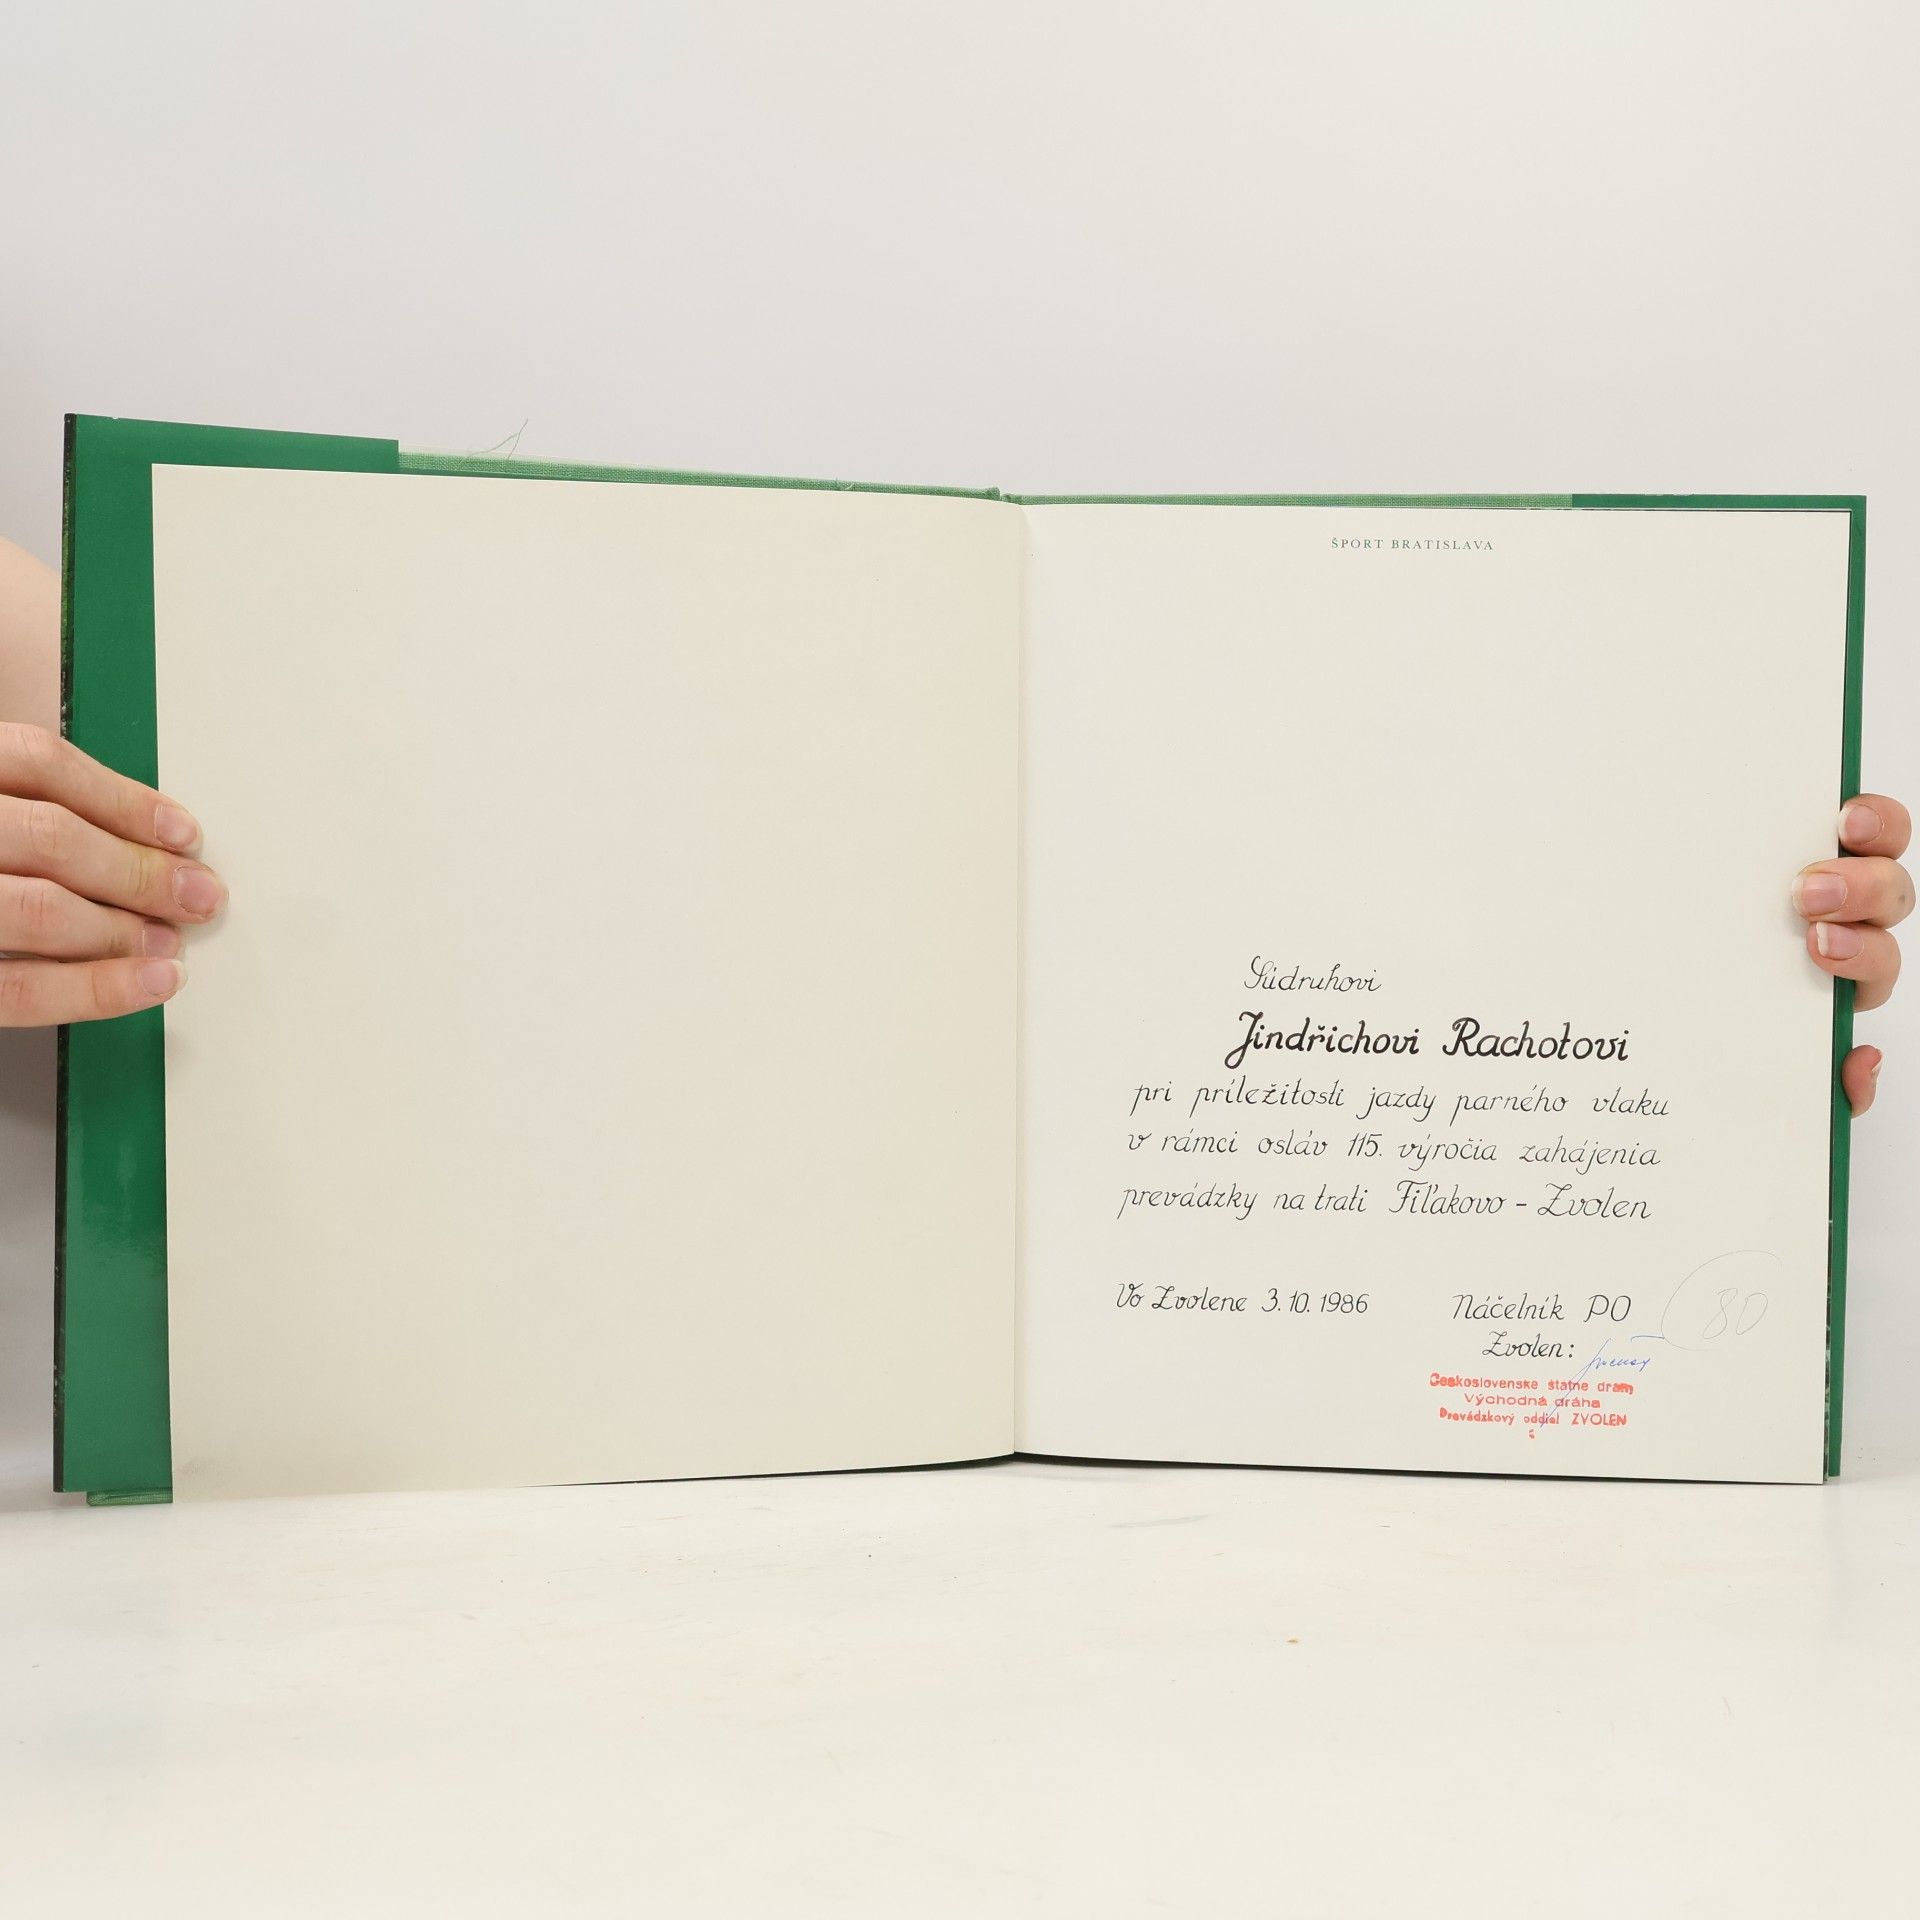 ŠPORT BRATISLAVA
Súdruhovi
Jindřichovi Rachotovi
pri príležitosti jazdy parného vlaku
v rámci osláv 115. výročia zahájenia
prevádzky na trati Fiľakovo - Zvolen
Vo Zvolene 3.10.1986
Náčelník PO
Zvolen:
80
Československe štatne dram
Východná dráha
Prevádzkový oddiel ZVOLEN